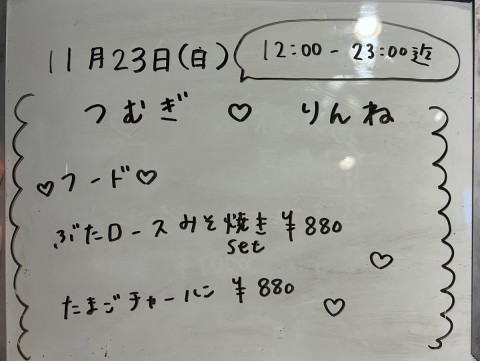 11月23日(日) 12:00 - 23:00迄
つむぎ ♡ りんね
♡フード♡
ぶたロースみそ焼き ¥880
set
たまごチャーハン ¥880